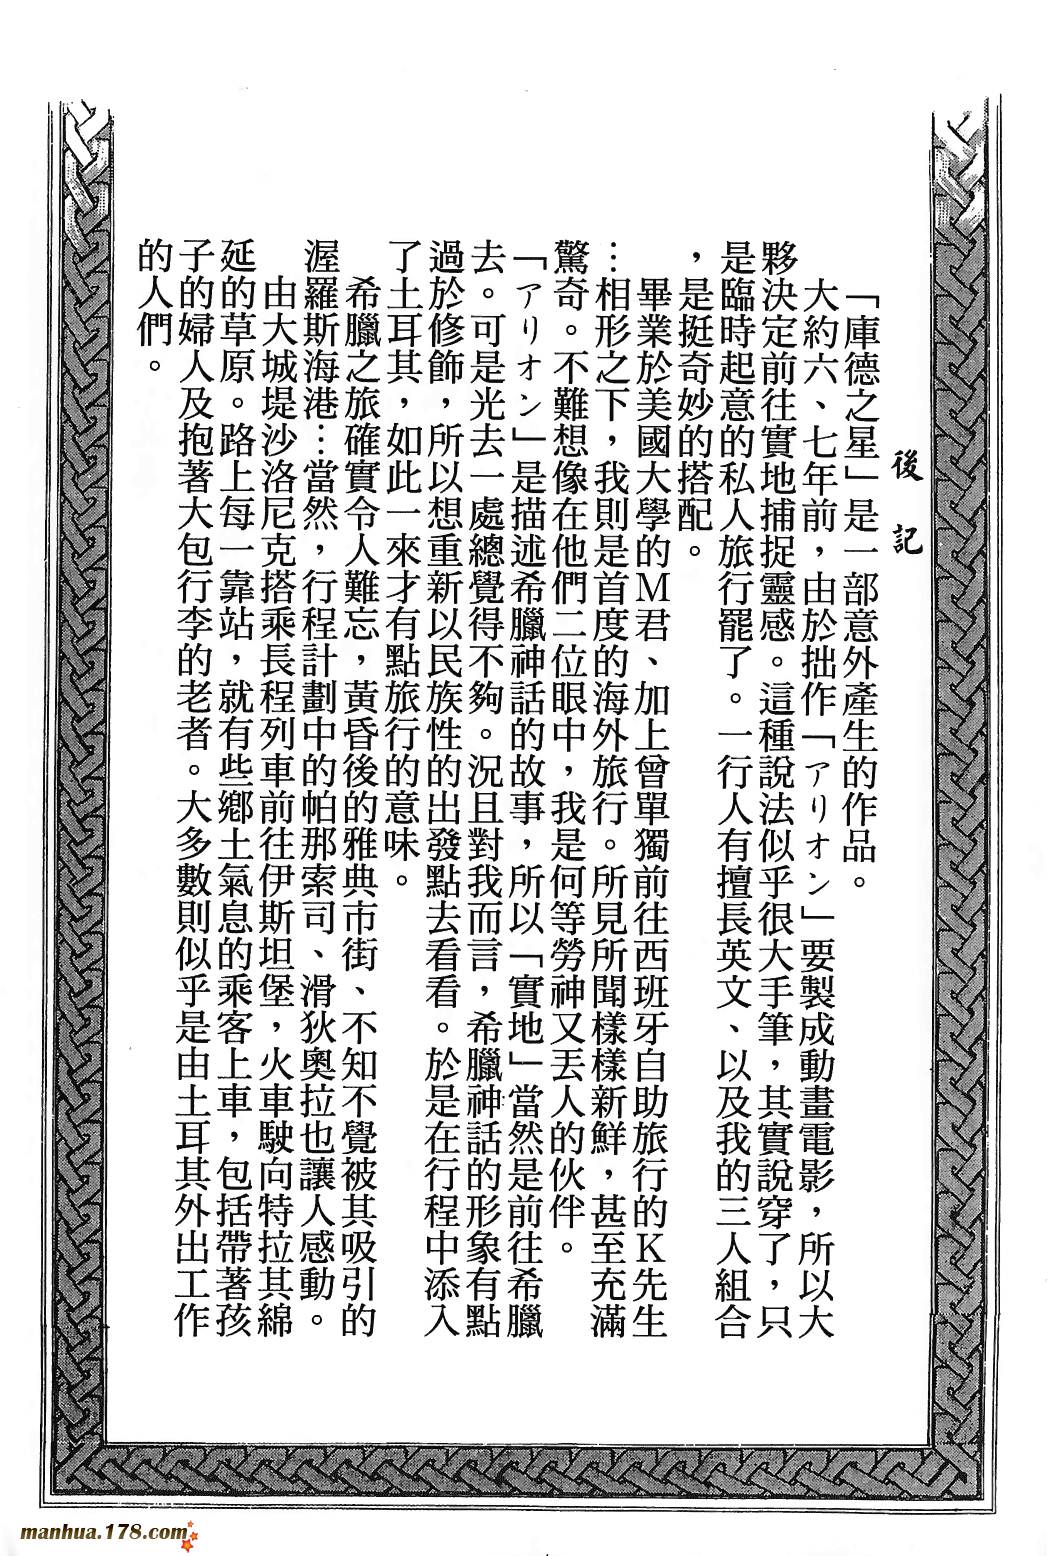 後記
「庫德之星」是一部意外產生的作品。
大約六、七年前，由於拙作「アリオン」要製成動畫電影，所以大
夥決定前往實地捕捉靈感。這種說法似乎很大手筆，其實說穿了，只
是臨時起意的私人旅行罷了。一行人有擅長英文、以及我的三人組合
，是挺奇妙的搭配。
畢業於美國大學的M君、加上曾單獨前往西班牙自助旅行的K先生
…相形之下，我則是首度的海外旅行。所見所聞樣樣新鮮，甚至充滿
驚奇。不難想像在他們二位眼中，我是何等勞神又丟人的伙伴。
「アリオン」是描述希臘神話的故事，所以「實地」當然是前往希臘
去。可是光去一處總覺得不夠。況且對我而言，希臘神話的形象有點
過於修飾，所以想重新以民族性的出發點去看看。於是在行程中添入
了土耳其，如此一來才有點旅行的意味。
希臘之旅確實令人難忘，黃昏後的雅典市街、不知不覺被其吸引的
渥羅斯海港…當然，行程計劃中的帕那索司、滑狄奧拉也讓人感動。
由大城堤沙洛尼克搭乘長程列車前往伊斯坦堡，火車駛向特拉其綿
延的草原。路上每一靠站，就有些鄉土氣息的乘客上車，包括帶著孩
子的婦人及抱著大包行李的老者。大多數則似乎是由土耳其外出工作
的人們。
manhua.178.com